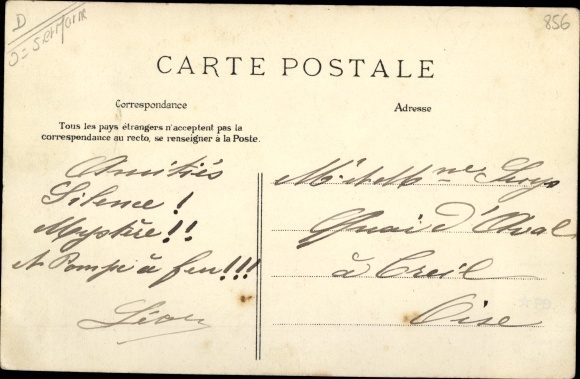 D
856
CARTE POSTALE
Correspondance
Tous les pays étrangers n'acceptent pas la
correspondance au recto, se renseigner à la Poste.
Amitiés
Silence !
Mystère !!
et Pompe à feu !!!
Léon
Adresse
Mr et Mme
Quai d'Aval
à Creil
Oise